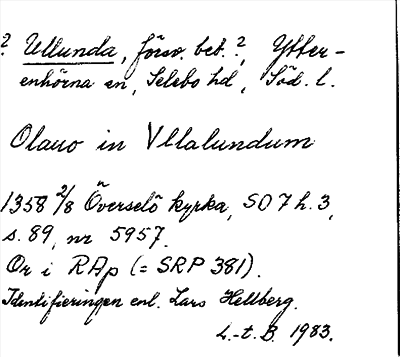 ? Ullunda, försv. bet. ?, Ytter-
enhörna sn, Selebo hd, Söd. l.
Olauo in Vllalundum
1358 2/8 Överselö kyrka, SO 7 h. 3,
s. 89, nr 5957.
Or i RAp (= SRP 381).
Identifieringen enl. Lars Hellberg.
L.-t. B. 1983.